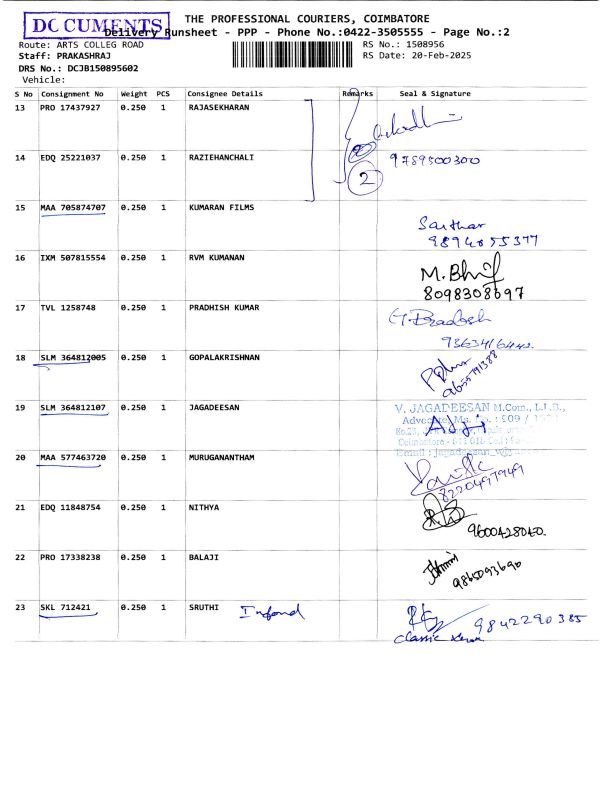 DOCUMENTS
THE PROFESSIONAL COURIERS, COIMBATORE
Delivery Runsheet - PPP - Phone No.:0422-3505555 - Page No.:2
Route: ARTS COLLEG ROAD RS No.: 1508956
Staff: PRAKASHRAJ RS Date: 20-Feb-2025
DRS No.: DCJB150895602
Vehicle:
S No Consignment No Weight PCS Consignee Details Remarks Seal & Signature
13 PRO 17437927 0.250 1 RAJASEKHARAN
14 EDQ 25221037 0.250 1 RAZIEHANCHALI 9789500300
2
15 MAA 705874707 0.250 1 KUMARAN FILMS
9894055377
16 IXM 507815554 0.250 1 RVM KUMANAN
8098308697
17 TVL 1258748 0.250 1 PRADHISH KUMAR
18 SLM 364812005 0.250 1 GOPALAKRISHNAN
19 SLM 364812107 0.250 1 JAGADEESAN V. JAGADEESAN M.Com., L.L.B.,
20 MAA 577463720 0.250 1 MURUGANANTHAM
8220497949
21 EDQ 11848754 0.250 1 NITHYA
9600428040.
22 PRO 17338238 0.250 1 BALAJI
9865093690
23 SKL 712421 0.250 1 SRUTHI 9842290385